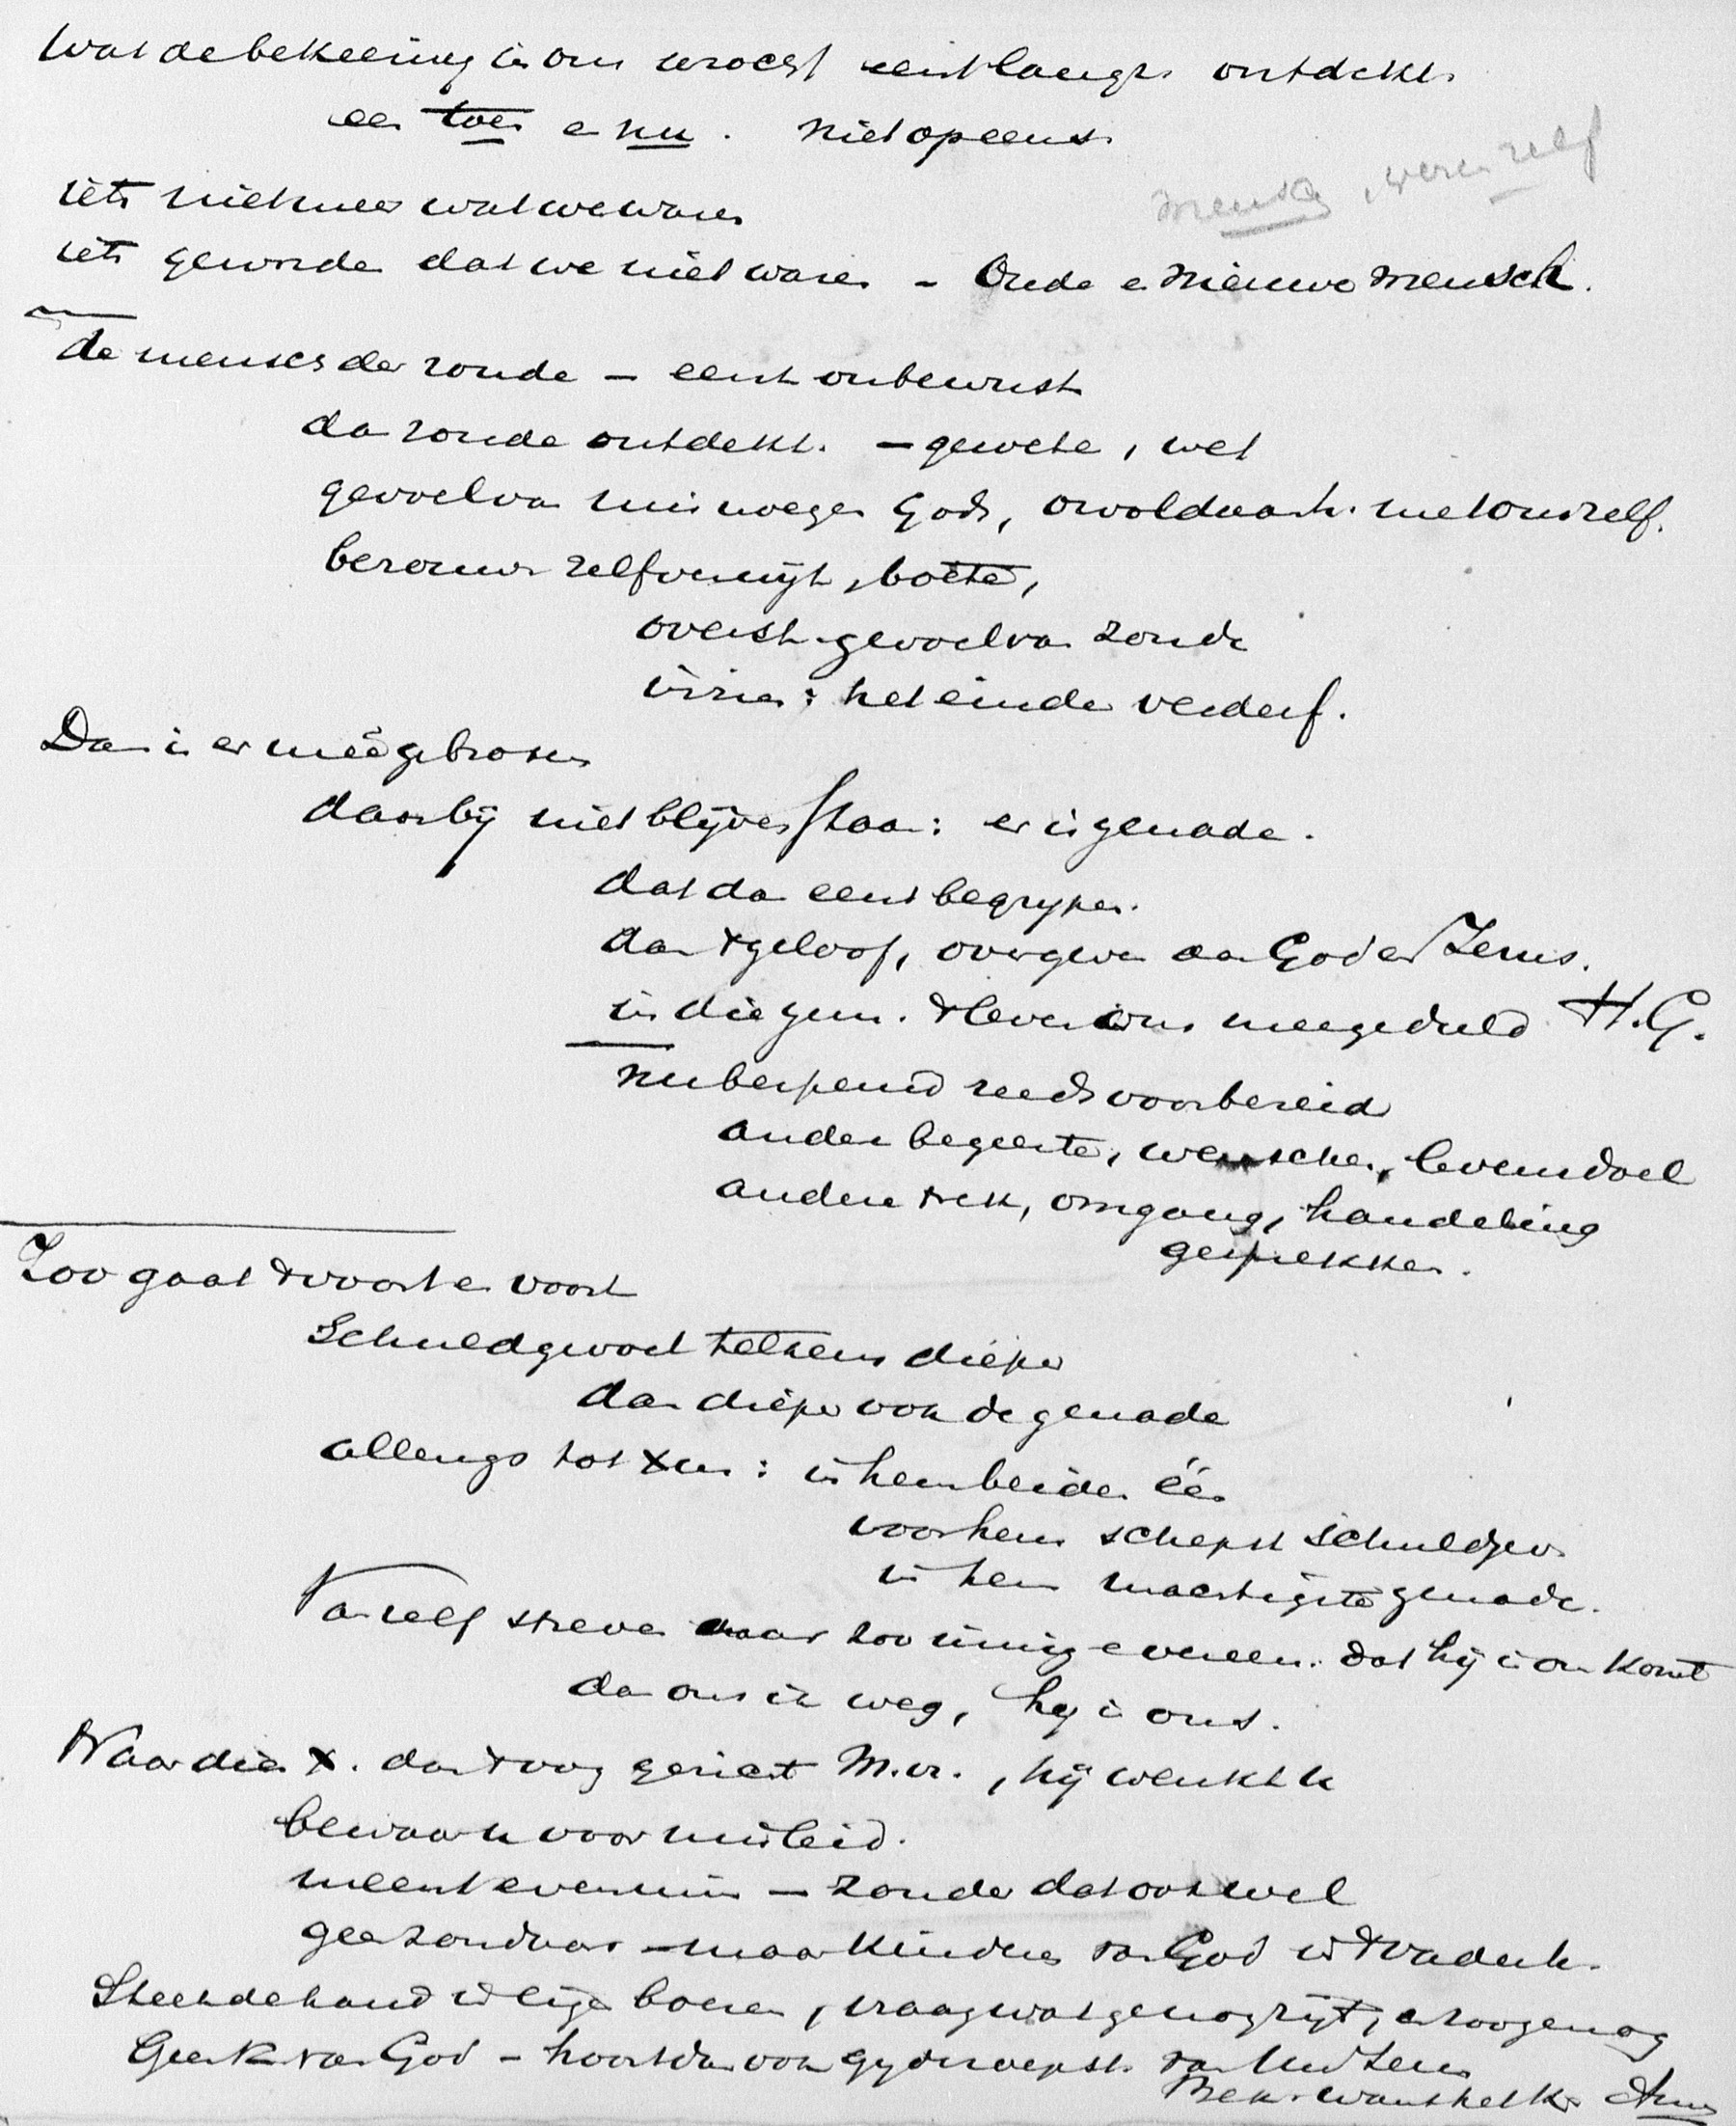 Wat de bekeering in ons wrocht eerst langz. ontdekt.
een toen en nu. niet opeens.
mensch, wezen zelf
iets niet meer wat we waren
iets geworden dat we niet waren - Oude en nieuwe mensch.
de mensch der zonde - eerst onbewust
dan zonde ontdekt. - geweten, wet
gevoel van misnoegen Gods, onvoldaanh. met onszelf.
berouw zelfvernijt, boete,
overst. gevoel van zonde
inzien: het einde verderf.
Dan is er meê gebroken
daarbij niet blijven staan: er is genade.
dat dan eerst begrijpen.
dan 't geloof, overgeven aan God en Jezus.
in die gem. 't leven ons meegedeeld H.G.
nu bespeurd reeds voorbereid
andere begeerte, wenschen, levensdoel
andere trek, omgang, handeling
gesprekken.
Zoo gaat 't voort en voort
Schuldgevoel telkens dieper
dan dieper ook de genade
allengs tot X en: in hem beiden één
voor hem scherpst schuldgev.
in hem machtigste genade.
Vanzelf streven naar zoo innige vereen. dat hij in ons komt
dan ons ik weg, hij in ons.
Naar dien X. dan 't oog gericht M.vr., hij wenkt u
bewaar u voor misleid.
meent evenmin - zonder dat ook wel
geen zondaar - maar kinderen van God in 't vaderh.
Steek de hand in eigen boezem, vraag wat genog zijt, en zoo genog
Geen k. van God - hoort dan ook gij de roepst. van